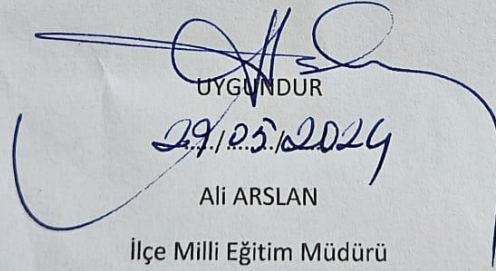 UYGUNDUR
29/05/2024
Ali ARSLAN
İlçe Milli Eğitim Müdürü